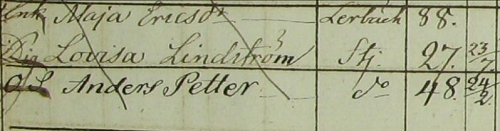 Enk Maja Ericsdr Lerbäck 88.
Pig Lovisa Lindström Stj. 27. 23/7
Anders Petter do 48. 24/2